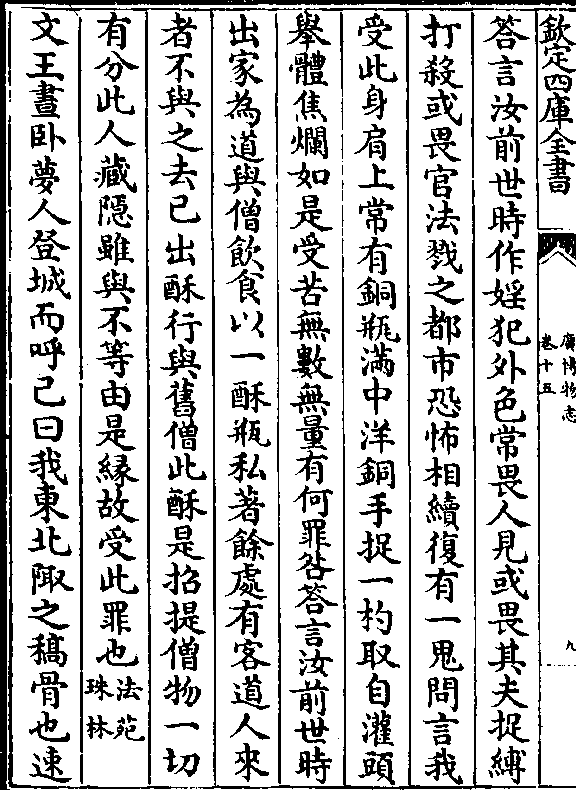 欽定四庫全書
廣博物志
卷十五
九
答言汝前世時作婬犯外色常畏人見或畏其夫捉縛
打殺或畏官法戮之都市恐怖相續復有一鬼問言我
受此身肩上常有銅瓶滿中洋銅手捉一杓取自灌頭
舉體焦爛如是受苦無數無量有何罪咎答言汝前世時
出家為道與僧飲食以一酥瓶私著餘處有客道人來
者不與之去已出酥行與舊僧此酥是招提僧物一切
有分此人藏隱雖與不等由是緣故受此罪也法苑珠林
文王晝卧夢人登城而呼己曰我東北陬之槁骨也速